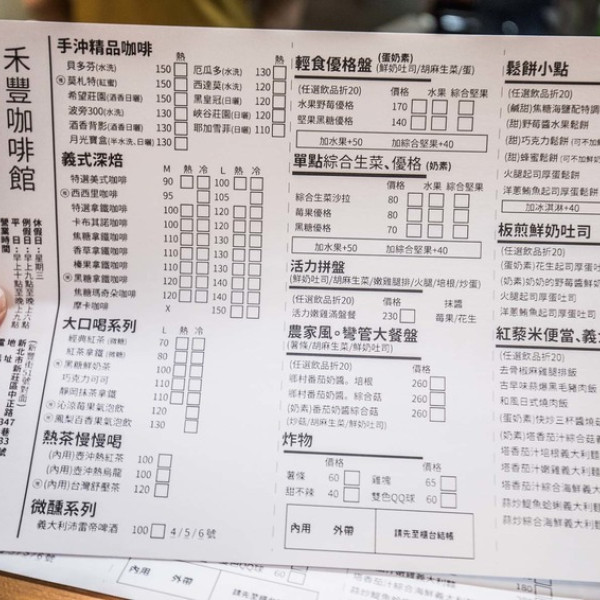 禾豐咖啡館
休假日：星期三
例假日：早上九點至晚上六點
平　日：早上十點至晚上九點
營業時間
(新豐街口對面)
新北市新莊區中正路
347巷
33號
地址
手沖精品咖啡 熱 熱
貝多芬(水洗) 150 厄瓜多(水洗) 130
莫札特(紅蜜) 150 西達莫(水洗) 120
希望莊園(酒香日曬) 150 黑皇冠(日曬) 120
波旁300(水洗) 130 峽谷莊園(日曬) 120
酒香背影(酒香日曬) 130 耶加雪菲(日曬) 110
月光寶盒(半水洗、日曬) 130
義式深焙 M 熱 冷 L 熱 冷
特選美式咖啡 90 100
西西里咖啡 95 105
特選拿鐵咖啡 100 120
卡布其諾咖啡 100 120
焦糖拿鐵咖啡 110 130
香草拿鐵咖啡 110 130
榛果拿鐵咖啡 110 130
黑糖拿鐵咖啡 120 140
焦糖瑪奇朵咖啡 120 140
摩卡咖啡 X 150
大口喝系列 L 熱 冷
經典紅茶(微糖) 70
紅茶拿鐵(微糖) 80
黑糖鮮奶茶 100
巧克力可可 110
靜岡抹茶拿鐵 110
沁涼莓果氣泡飲 120
鳳梨百香果氣泡飲 130
熱茶慢慢喝
(內用)壺沖熱紅茶 100
(內用)壺沖熱烏龍 100
(內用)台灣舒壓茶 120
微醺系列
義大利沛雷帝啤酒 100 4/5/6號
輕食優格盤 (蛋奶素) (鮮奶吐司/胡麻生菜/蛋)
(任選飲品折20) 價格 水果 綜合堅果
水果野莓優格 170
堅果黑糖優格 140
加水果+50 加綜合堅果+40
單點綜合生菜、優格 (奶素)
價格 水果 綜合堅果
綜合生菜沙拉 80
莓果優格 80
黑糖優格 70
加水果+50 加綜合堅果+40
活力拼盤
(鮮奶吐司/胡麻生菜/嫩雞腿排/火腿/培根/炒蛋)
(任選飲品折20) 價格 抹醬
活力嫩雞滿盤餐 230 莓果/花生
農家風。彎管大餐盤
(薯條/胡麻生菜/鮮奶吐司)
(任選飲品折20) 價格
鄉村番茄奶醬。培根 260
鄉村番茄奶醬。綜合菇 260
(奶素)番茄奶醬綜合菇 260
(炒菇/胡麻生菜/鮮奶吐司)
炸物
價格 價格
薯條 60 雞塊 65
甜不辣 40 雙色QQ球 60
內用 外帶 請先至櫃台結帳
鬆餅小點
(任選飲品折20)
(鹹甜)焦糖海鹽配特調
(甜)野莓醬水果鬆餅
(甜)巧克力鬆餅(可不加鮮
(甜)蜂蜜鬆餅(可不加鮮
火腿起司厚蛋鬆餅
洋蔥鮪魚起司厚蛋鬆餅
加冰淇淋+40
板煎鮮奶吐司
(任選飲品折20)
(蛋奶素)花生起司厚蛋吐
(蛋奶素)奶奶的野莓醬鮮奶
火腿起司厚蛋吐司
洋蔥鮪魚起司厚蛋吐司
紅藜米便當、義大
(任選飲品折20)
去骨板麻雞腿排飯
古早味蒜爆黑毛豬肉飯
和風日式燒肉飯
(蛋奶素)快炒三杯醬燒
(奶素)塔香茄汁綜合菇義
塔香茄汁培根義大利麵
塔香茄汁嫩雞義大利麵
塔香茄汁綜合海鮮義大
蒜炒鯷魚蛤蜊義大利麵
蒜炒綜合海鮮義大利麵
內用 外帶